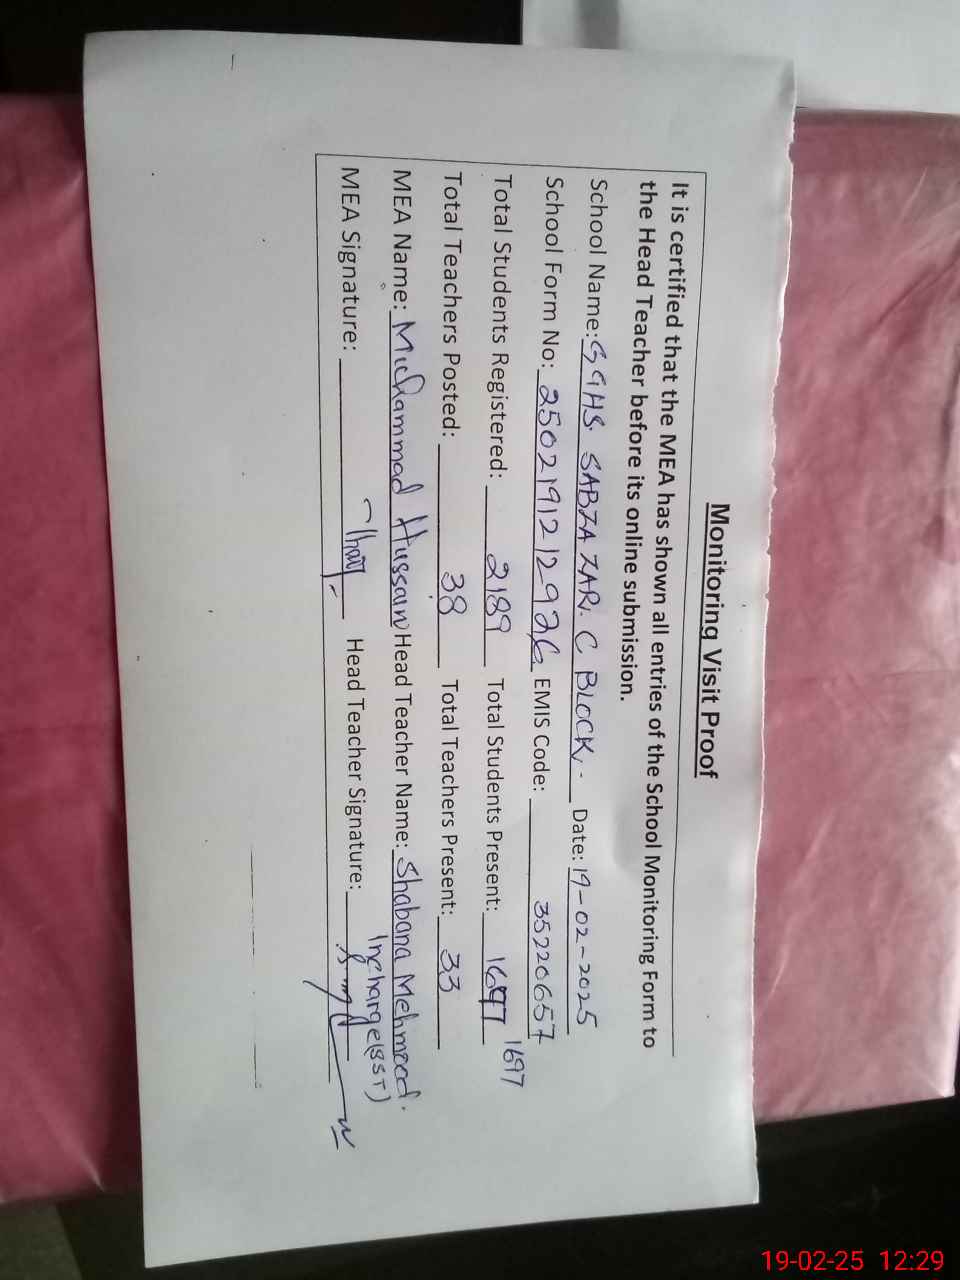 Monitoring Visit Proof
It is certified that the MEA has shown all entries of the School Monitoring Form to
the Head Teacher before its online submission.
School Name: GGHS. SABZA ZAR. C BLOCK. Date: 19-02-2025
School Form No: 2502191212926 EMIS Code: 35220657
Total Students Registered: 2189 Total Students Present: 1697 1697
Total Teachers Posted: 38 Total Teachers Present: 33
MEA Name: Muhammad Hussain Head Teacher Name: Shabana Mehmood.
Incharge (SST)
MEA Signature: Head Teacher Signature:
19-02-25 12:29